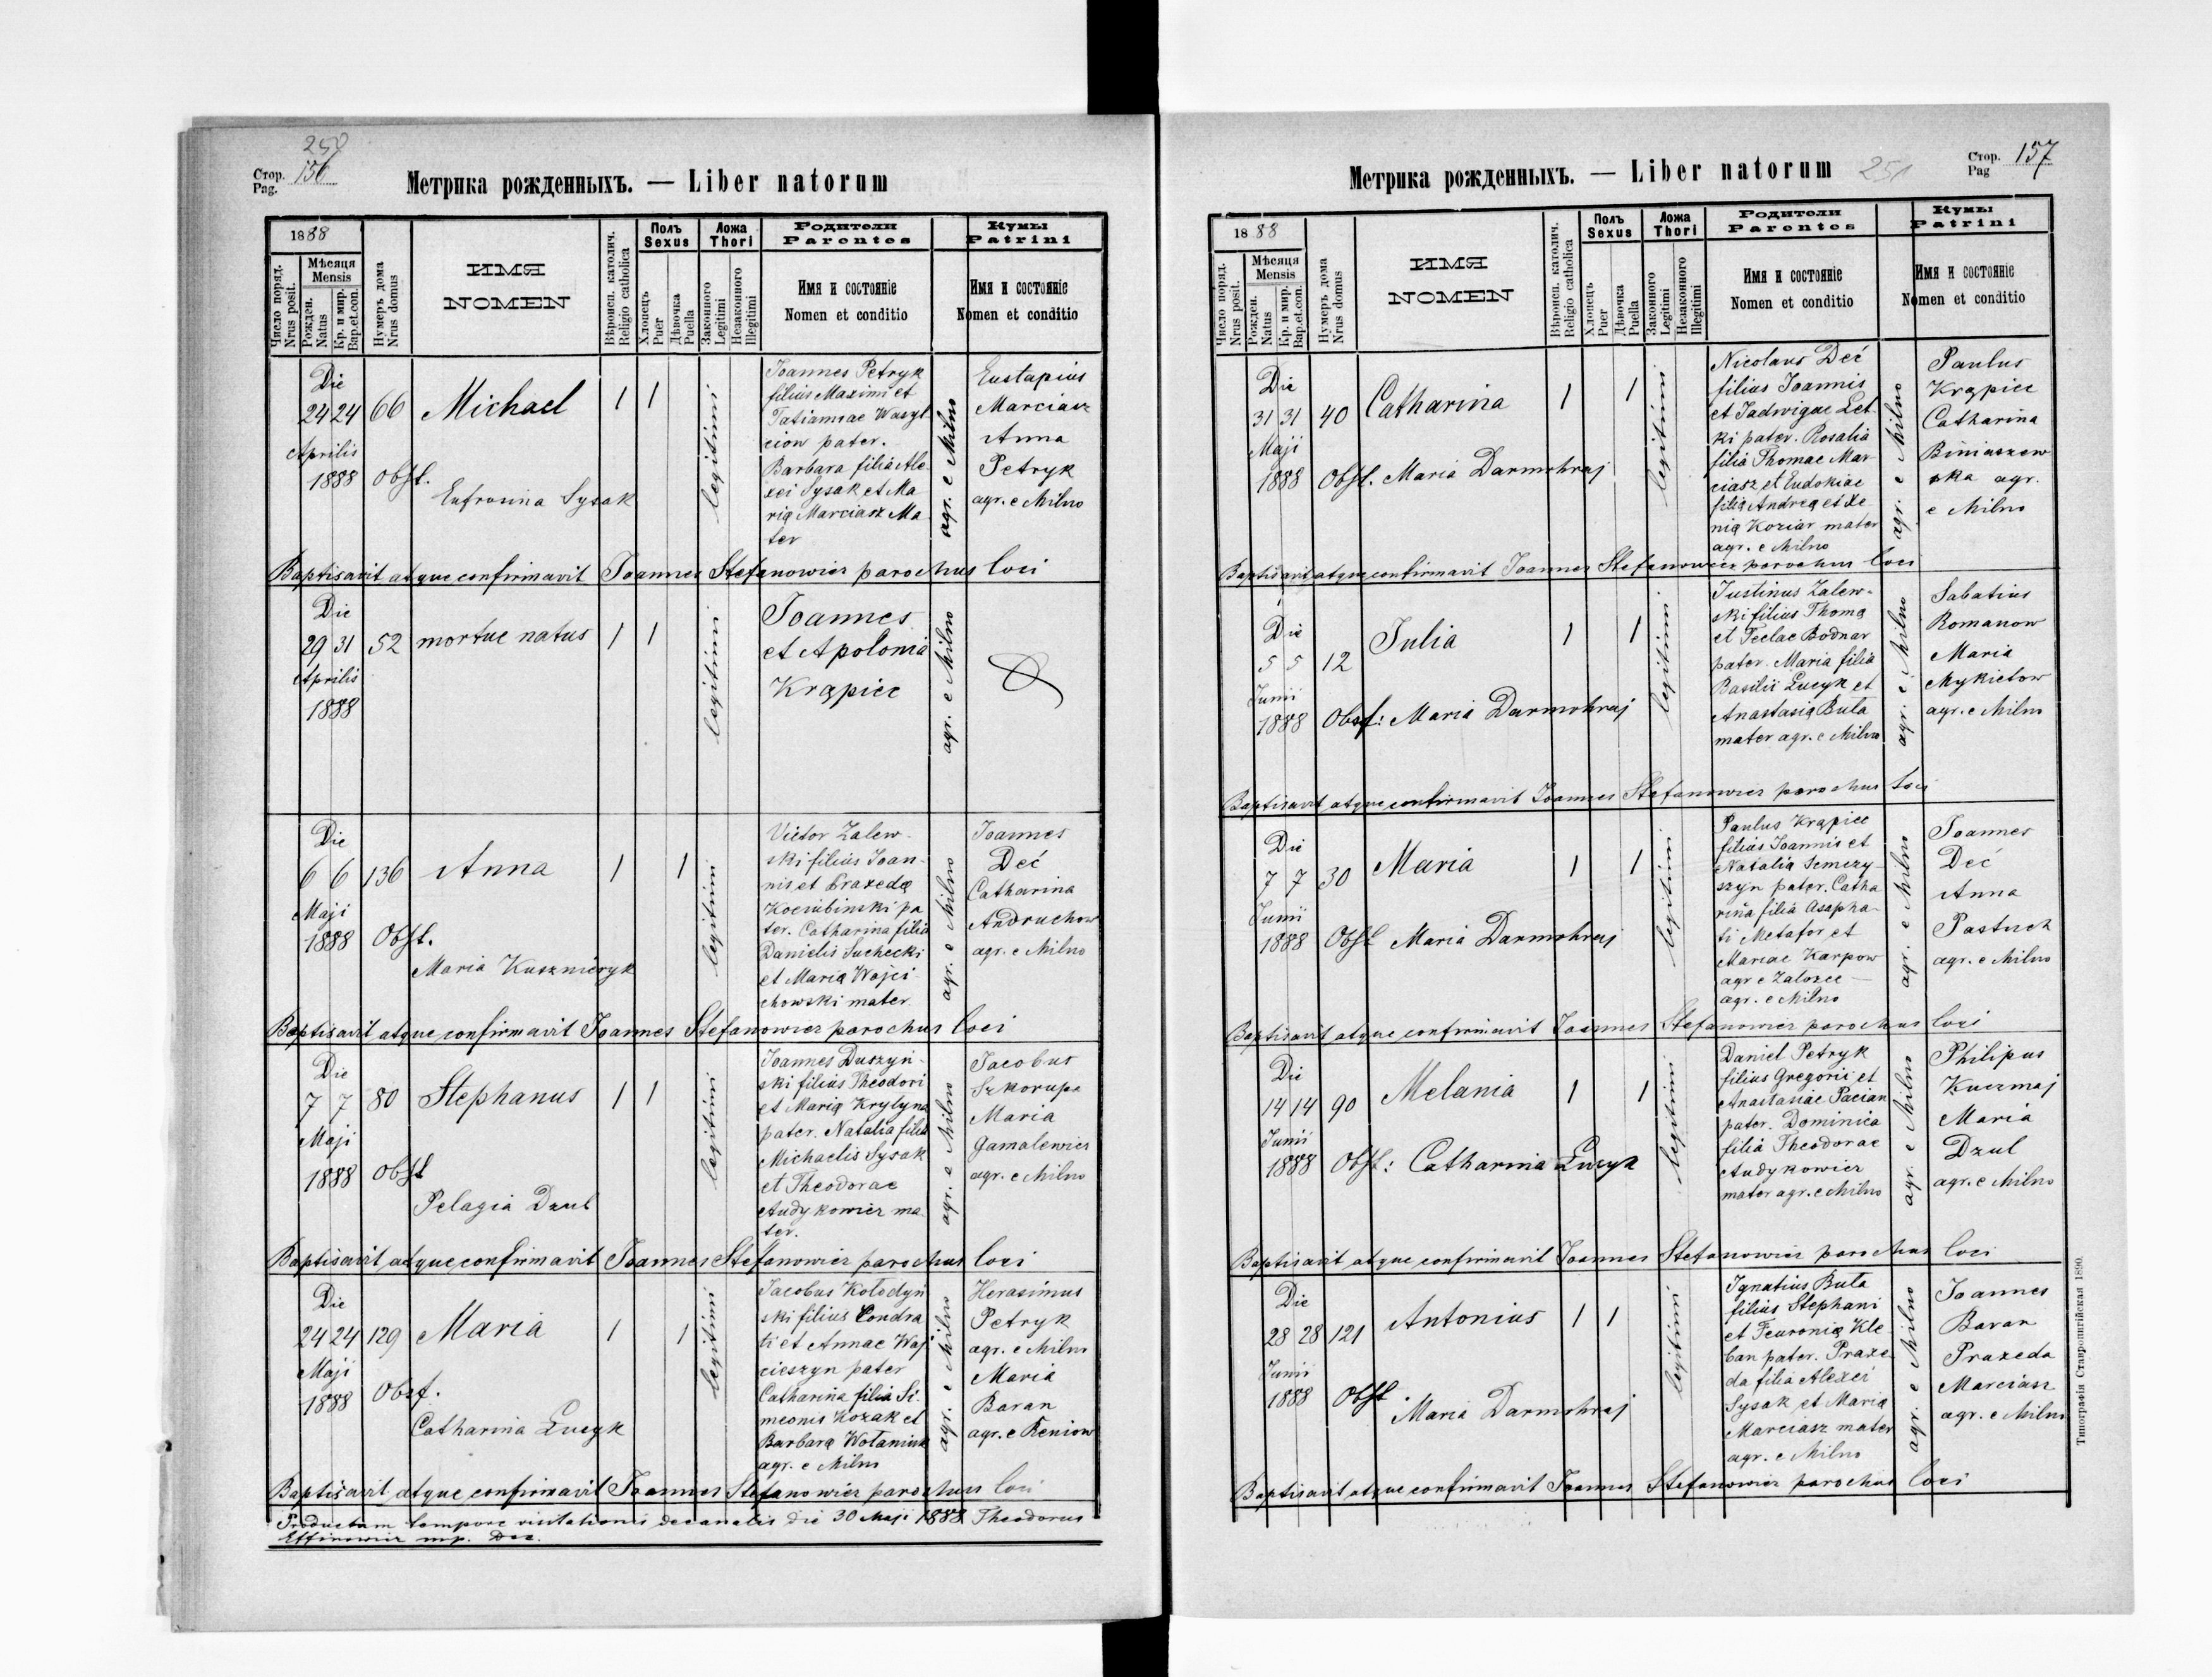 250
Стор. 156
Pag.
Метрика рожденныхъ. — Liber natorum
1888
Число поряд.
Nrus posit.
Мѣсяця
Mensis
Рожден.
Natus
Кр. и мир.
Bap.et.con.
Нумеръ дома
Nrus domus
ИМЯ
NOMEN
Вѣроисп. католич.
Religio catholica
Полъ
Sexus
Хлопецъ
Puer
Дѣвочка
Puella
Ложа
Thori
Законного
Legitimi
Незаконного
Illegitimi
Родители
Parentes
Имя и состояніе
Nomen et conditio
Кумы
Patrini
Имя и состояніе
Nomen et conditio
Die
24 24
Aprilis
1888
66
Michael
1 1
obst.
Eufrosina Sysak
legitimi
Joannes Petryk
filius Maximi et
Tatiannae Wasyl
ciow pater.
Barbara filia Ale
xei Sysak et Ma
ria Marciasz Ma
ter
agr. e Milno
Eustapius
Marciasz
Anna
Petryk
agr. e Milno
Baptisavit atque confirmavit Joannes Stefanowicz parochus loci
Die
29 31
Aprilis
1888
52
mortue natus
1 1
legitimi
Joannes
et Apolonia
Krąpiec
agr. e Milno
Die
6 6
Maji
1888
136
Anna
1 1
Obst.
Maria Kusznieryk
legitimi
Victor Zalew-
ski filius Joan-
nis et Praxeda
Kociubinski pa
ter. Catharina filia
Danielis Suchecki
et Maria Wojci
chowski mater
agr. e Milno
Joannes
Deć
Catharina
Andruchow
agr. e Milno
Baptisavit atque confirmavit Joannes Stefanowicz parochus loci
Die
7 7
Maji
1888
80
Stephanus
1 1
obst
Pelagia Dzul
legitimi
Joannes Duszyń-
ski filius Theodori
et Maria Krylyna
pater. Natalia filia
Michaelis Sysak
et Theodorae
Audykowicz ma
ter.
agr. e Milno
Jacobus
Szkorupa
Maria
Gamalewicz
agr. e Milno
Baptisavit atque confirmavit Joannes Stefanowicz parochus loci
Die
24 24
Maji
1888
129
Maria
1 1
Obst.
Catharina Lucyk
legitimi
Jacobus Kołodyń
ski filius Condra
ti et Annae Woj
cieszyn pater
Catharina filia Si
meonis Kozak et
Barbara Wołaniuk
agr. e Milno
agr. e Milno
Herasimus
Petryk
agr. e Milno
Maria
Baran
agr. e Reniow
Baptisavit atque confirmavit Joannes Stefanowicz parochus loci
Productum tempore visitationis decanalis die 30 Maji 1888 Theodorus
Effinowicz mp. Dec.
Метрика рожденныхъ. — Liber natorum
251
Стор. 157
Pag
1888
Число поряд.
Nrus posit.
Мѣсяця
Mensis
Рожден.
Natus
Кр. и мир.
Bap.et.con.
Нумеръ дома
Nrus domus
ИМЯ
NOMEN
Вѣроисп. католич.
Religio catholica
Полъ
Sexus
Хлопецъ
Puer
Дѣвочка
Puella
Ложа
Thori
Законного
Legitimi
Незаконного
Illegitimi
Родители
Parentes
Имя и состояніе
Nomen et conditio
Кумы
Patrini
Имя и состояніе
Nomen et conditio
Die
31 31
Maji
1888
40
Catharina
1 1
Obst. Maria Darmohraj
legitimi
Nicolaus Deć
filius Joannis
et Jadwigae Let
ki pater. Rosalia
filia Thomae Mar
ciasz et Eudokiae
filia Andrea et Xe
nia Koziar mater
agr. e Milno
agr. e Milno
Paulus
Krąpiec
Catharina
Biniaszew
ska agr.
e Milno
Baptisavit atque confirmavit Joannes Stefanowicz parochus loci
Die
5 5
Junii
1888
12
Julia
1 1
Obst: Maria Darmohraj
legitimi
Justinus Zalew-
ski filius Thoma
et Teclae Bodnar
pater. Maria filia
Basilii Lucyk et
Anastasia Buta
mater agr. e Milno
agr. e Milno
Sabatius
Romanow
Maria
Mykietow
agr. e Milno
Baptisavit atque confirmavit Joannes Stefanowicz parochus loci
Die
7 7
Junii
1888
30
Maria
1 1
Obst Maria Darmohraj
legitimi
Paulus Krąpiec
filius Joannis et
Natalia Semczy-
szyn pater. Catha
rina filia Asapha-
ti Metafor et
Mariae Karpow
agr e Załozce —
agr. e Milno
agr. e Milno
Joannes
Deć
Anna
Pastuch
agr. e Milno
Baptisavit atque confirmavit Joannes Stefanowicz parochus loci
Die
14 14
Junii
1888
90
Melania
1 1
Obst: Catharina Lucyk
legitimi
Daniel Petryk
filius Gregorii et
Anastasiae Pacian
pater. Dominica
filia Theodorae
Audykowicz
mater agr. e Milno
agr. e Milno
Philipus
Kuczmaj
Maria
Dzul
agr. e Milno
Baptisavit atque confirmavit Joannes Stefanowicz parochus loci
Die
28 28
Junii
1888
121
Antonius
1 1
Obst.
Maria Darmohraj
legitimi
Ignatius Buta
filius Stephani
et Feuronia Kle
ban pater. Praxe
da filia Alexei
Sysak et Maria
Marciasz mater
agr. e Milno
agr. e Milno
Joannes
Baran
Praxeda
Marciasz
agr. e Milno
Baptisavit atque confirmavit Joannes Stefanowicz parochus loci
Типографія Ставропигійская 1890.